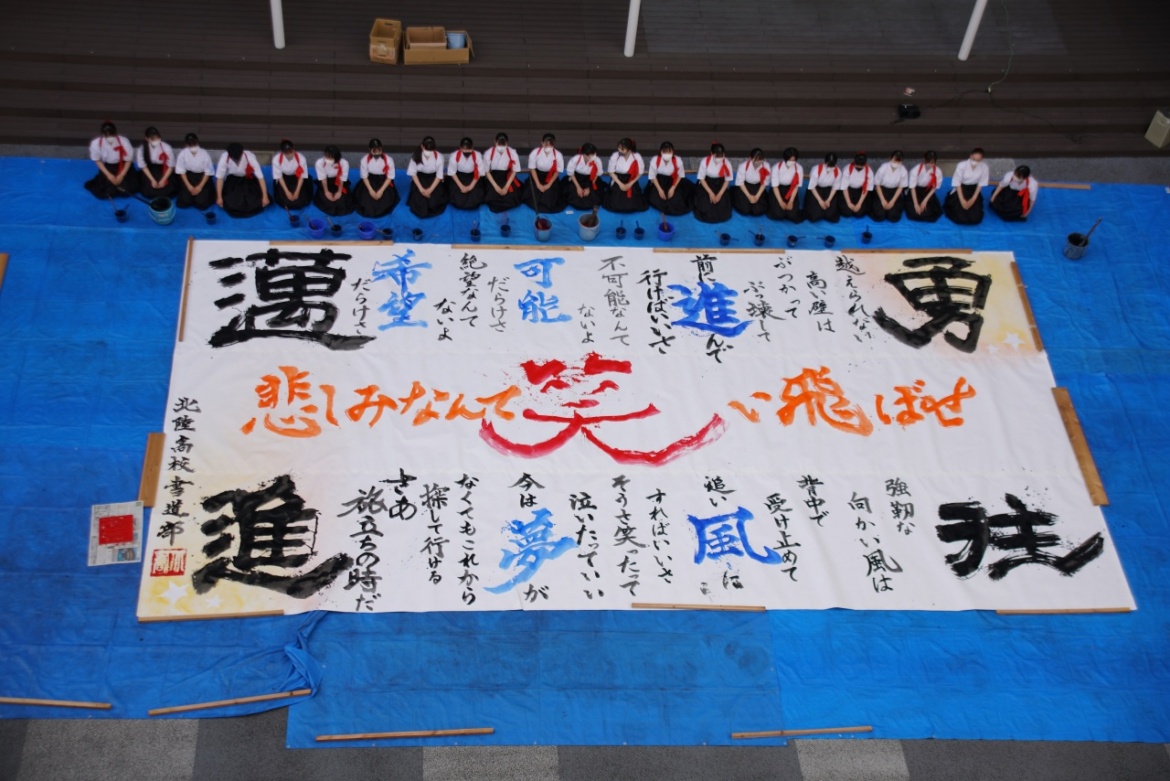 勇
越えられない
高い壁は
ぶつかって
ぶっ壊して
前に進んで
行けばいいさ
不可能なんて
ないよ
可能
だらけさ
絶望なんて
ないよ
希望
だらけさ
邁
悲しみなんて笑い飛ばせ
往
強靭な
向かい風は
背中で
受け止めて
追い風に
すればいいさ
そうさ笑ったって
泣いたっていい
今は夢が
なくてもこれから
探して行ける
さあ
旅立ちの時だ
進
北陸高校書道部